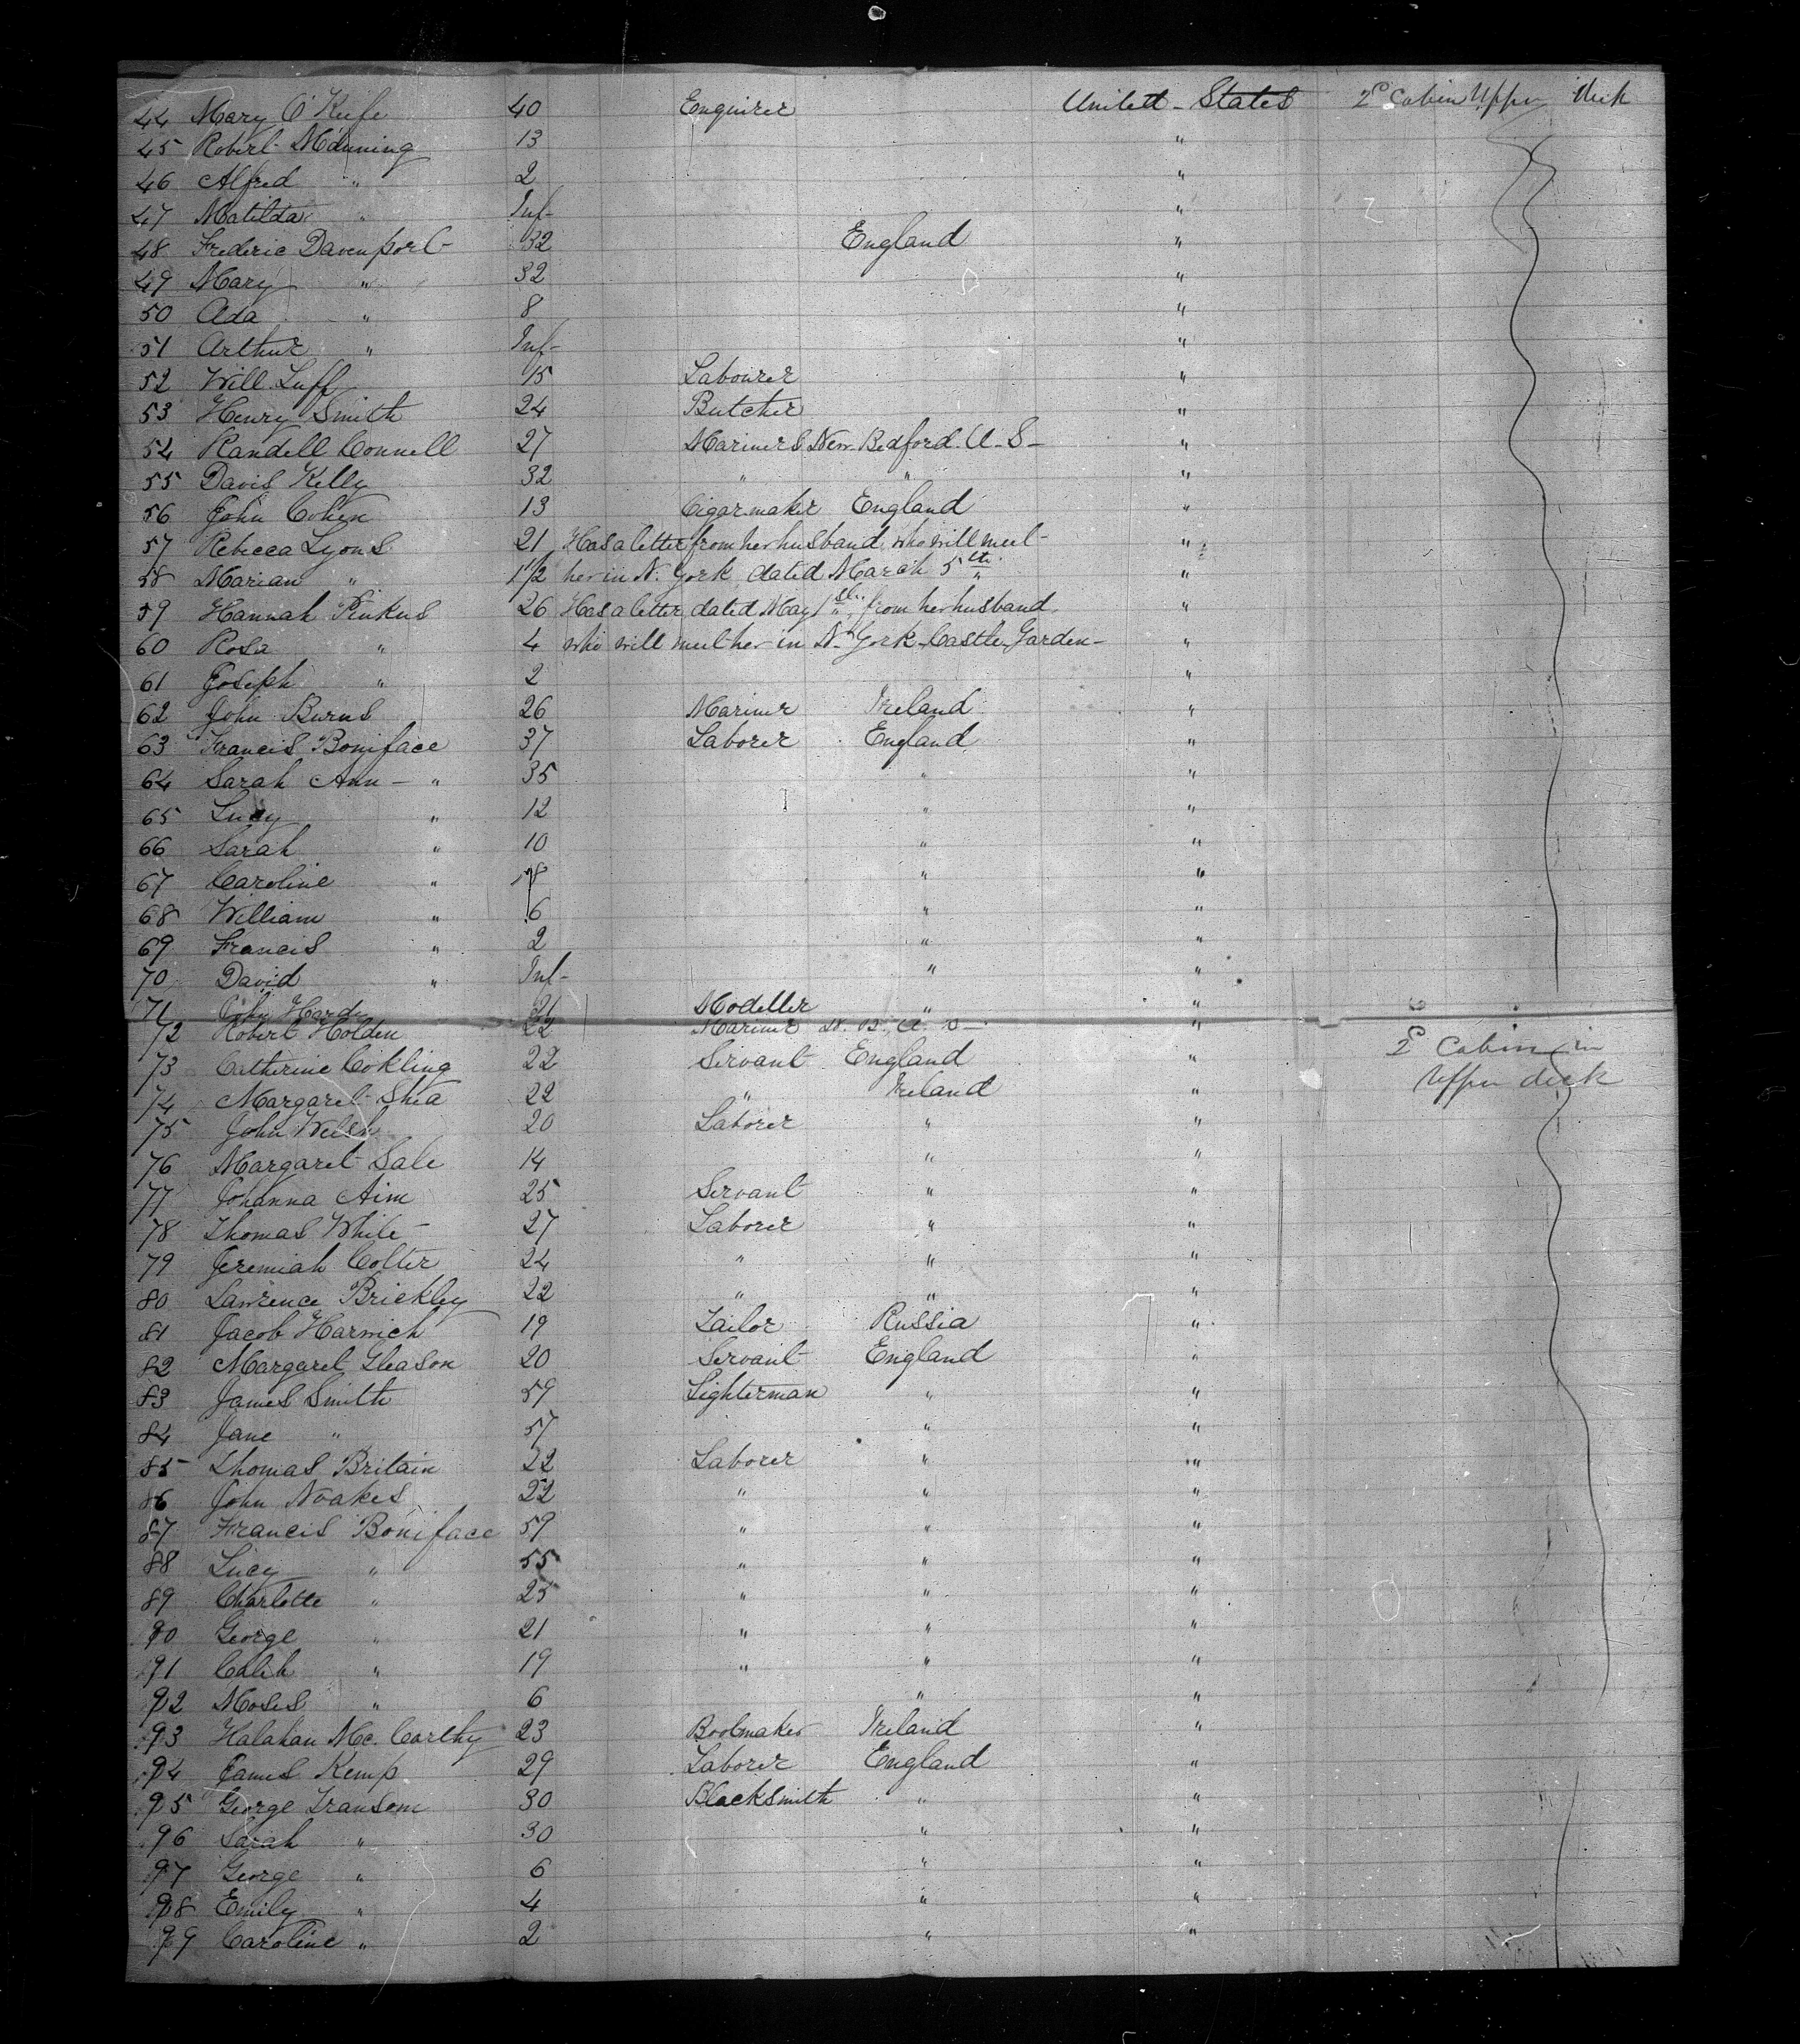 44 Mary O'Keefe 40 Enquirer United States 2d Cabin Upper deck
45 Robert 13 "
46 Alfred " 2 "
47 Matilda " Inf- "
48 Frederic Davenport 32 England "
49 Mary " 32 "
50 Ada " 8 "
51 Arthur " Inf- "
52 Will Luff 15 Labourer "
53 Henry Smith 24 Butcher "
54 Randell Connell 27 Mariners New Bedford U-S- "
55 Davis Kelly 32 " " "
56 John Cohen 13 Cigarmaker England "
57 Rebecca Lyons 21 Has a letter from her husband who will meet "
58 Marian " 1 1/2 her in N. York dated March 5th "
59 Hannah Pinkus 26 Has a letter dated May 1st from her husband "
60 Rosa " 4 who will meet her in N. York Castle Garden- "
61 Joseph " 2 "
62 John Burns 26 Mariner Ireland "
63 Francis Boniface 37 Laborer England "
64 Sarah Ann - " 35 " "
65 Lucy " 12 " "
66 Sarah " 10 " "
67 Caroline " 8 " "
68 William " 6 " "
69 Francis " 2 " "
70 David " Inf- " "
71 John Hardy 21 Modeller " "
72 Robert Holden 22 Mariner N. B. U. S- "
73 Catherine Cokling 22 Servant England " 2d Cabin in
74 Margaret Shea 22 " Ireland " Upper deck
75 John Welsh 20 Laborer " "
76 Margaret Sale 14 " "
77 Johanna Aim 25 Servant " "
78 Thomas White 27 Laborer " "
79 Jeremiah Colter 24 " " "
80 Lawrence Brickley 22 " " "
81 Jacob Harwich 19 Tailor Russia "
82 Margaret Gleason 20 Servant England "
83 James Smith 59 Lighterman " "
84 Jane " 57 " "
85 Thomas Britain 22 Laborer " "
86 John Noakes 22 " " "
87 Francis Boniface 59 " " "
88 Lucy " 55 " " "
89 Charlotte " 25 " " "
90 George " 21 " " "
91 Caleb " 19 " " "
92 Moses " 6 " "
93 Halahan Mc. Carthy 23 Bootmaker Ireland "
94 James Kemp 29 Laborer England "
95 George Transom 30 Blacksmith " "
96 Sarah " 30 " "
97 George " 6 " "
98 Emily " 4 " "
99 Caroline " 2 " "